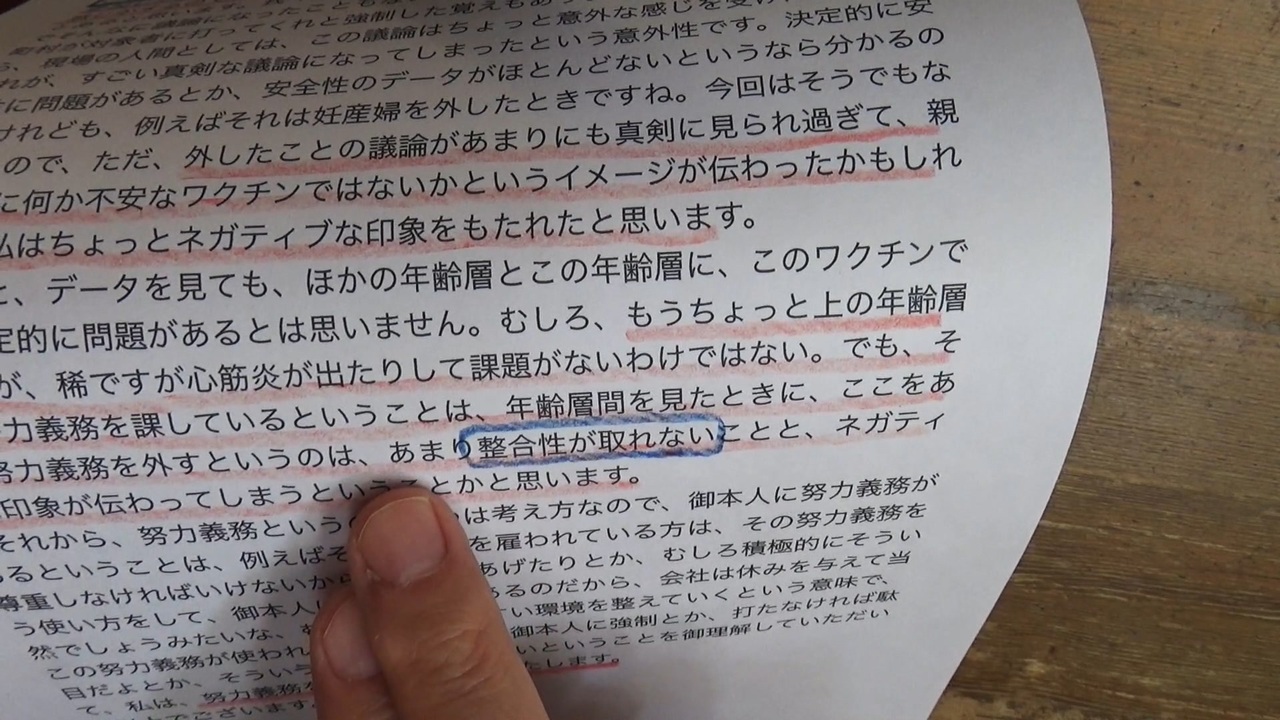 そんなに議論になったことも
町村が対象者に打ってくれと強制した覚えもあり
ら、現場の人間としては、この議論はちょっと意外な感じを受け
れが、すごい真剣な議論になってしまったという意外性です。決定的に安
に問題があるとか、安全性のデータがほとんどないというなら分かるの
けれども、例えばそれは妊産婦を外したときですね。今回はそうでもな
ので、ただ、外したことの議論があまりにも真剣に見られ過ぎて、親
に何か不安なワクチンではないかというイメージが伝わったかもしれ
私はちょっとネガティブな印象をもたれたと思います。
と、データを見ても、ほかの年齢層とこの年齢層に、このワクチンで
定的に問題があるとは思いません。むしろ、もうちょっと上の年齢層
が、稀ですが心筋炎が出たりして課題がないわけではない。でも、そ
力義務を課しているということは、年齢層間を見たときに、ここをあ
努力義務を外すというのは、あまり整合性が取れないことと、ネガティ
印象が伝わってしまうということかと思います。
それから、努力義務という は考え方なので、御本人に努力義務が
るということは、例えばそ を雇われている方は、その努力義務を
尊重しなければいけないから あげたりとか、むしろ積極的にそうい
う使い方をして、御本人に あるのだから、会社は休みを与えて当
然でしょうみたいな、 い環境を整えていくという意味で、
この努力義務が使われ 御本人に強制とか、打たなければ駄
目だよとか、そういう いということを御理解していただい
て、私は、努力義務を たします。